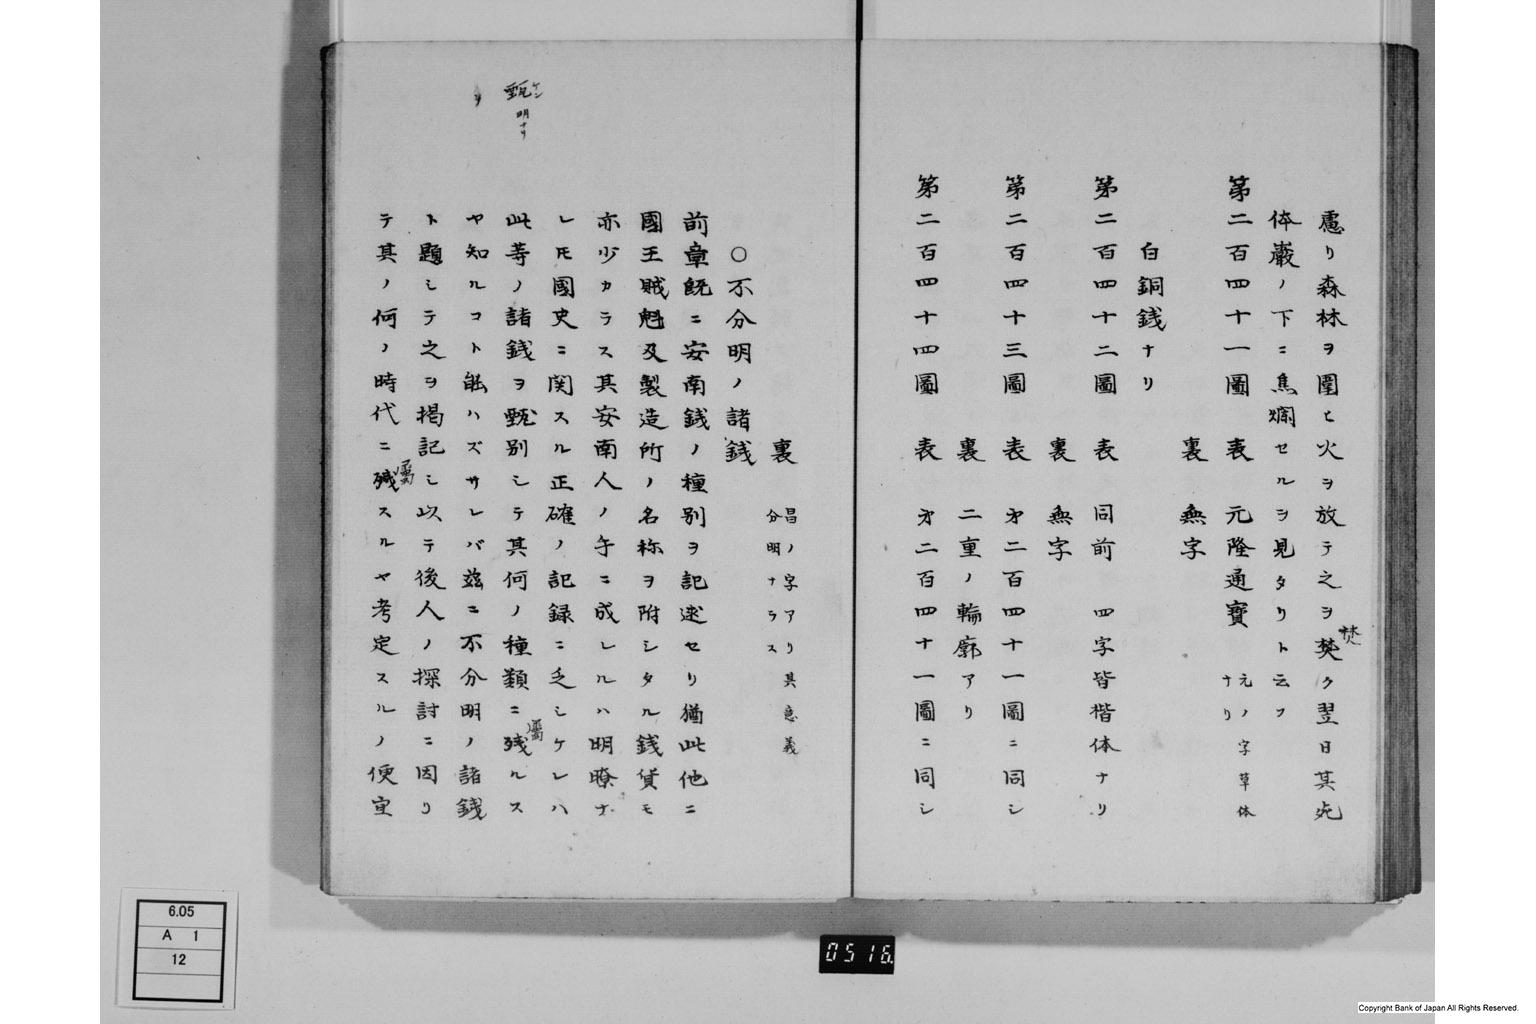 慮リ森林ヲ圍ヒ火ヲ放テ之ヲ焚ク翌日其死
焚
体巌ノ下ニ焦爛セルヲ見タリト云フ
第二百四十一圖 表 元隆通寳 元ノ字草体ナリ
裏 無字
白銅銭ナリ
第二百四十二圖 表 同前 四字皆楷体ナリ
裏 無字
第二百四十三圖 表 第二百四十一圖ニ同シ
裏 二重ノ輪廓アリ
第二百四十四圖 表 第二百四十一圖ニ同シ
裏 昌ノ字アリ其意義分明ナラス
○不分明ノ諸銭
前章既ニ安南銭ノ種別ヲ記述セリ猶此他ニ
國王賊魁及製造所ノ名称ヲ附シタル銭貨モ
亦少カラス其安南人ノ手ニ成レルハ明瞭ナ
レ𪜈國史ニ関スル正確ノ記録ニ乏シケレハ
此等ノ諸銭ヲ甄別シテ其何ノ種類ニ残ルス
屬
甄 ケン
明ナリ
ヤ知ルコト能ハズサレバ茲ニ不分明ノ諸銭
ヲ
ト題シテ之ヲ掲記シ以テ後人ノ探討ニ因リ
テ其ノ何ノ時代ニ残スルヤ考定スルノ便宜
屬
6.05
A 1
12
0516
Copyright Bank of Japan All Rights Reserved.